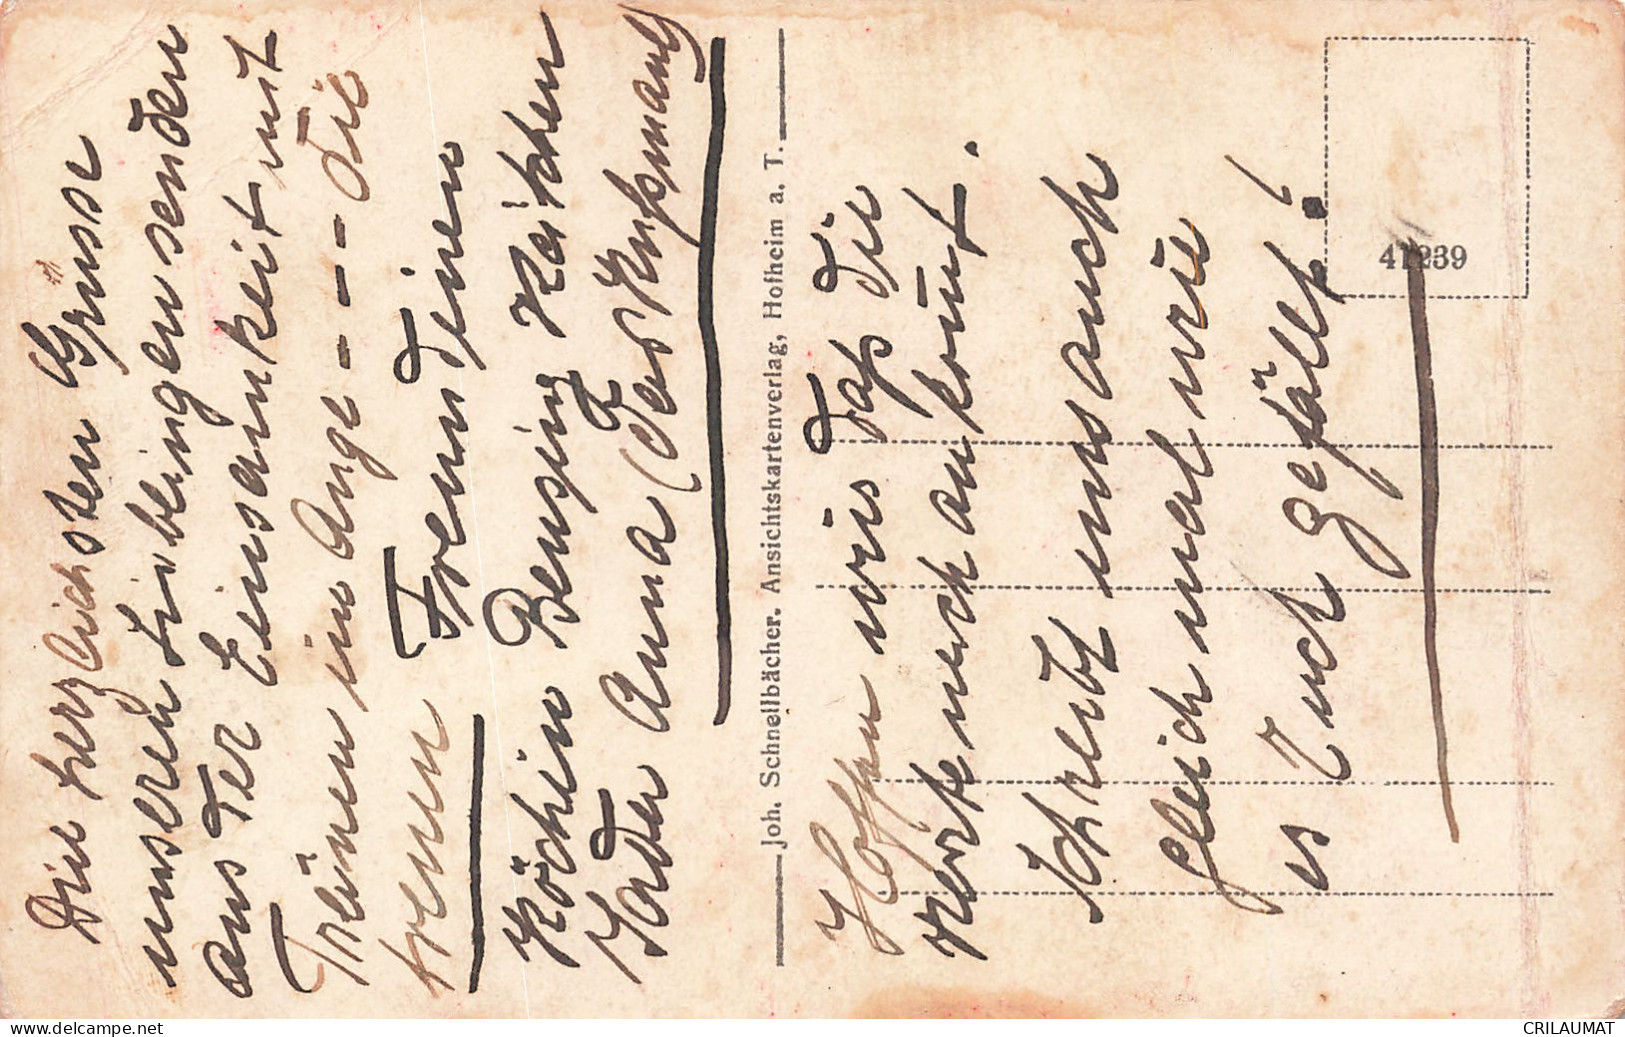 Die herzlichsten Grüsse
unseren Lieblingen senden
aus der Einsamkeit mit
Tränen im Auge - - - - die
treuen Freundinen
Köchin Bensing Käthen
Anna (
Joh. Schnellbächer. Ansichtskartenverlag, Hofheim a. T.
41239
Hoffen wir daß die
Karte noch ankommt.
Schreibt uns auch
gleich mal wie
es Euch gefällt!
www.delcampe.net
CRILAUMAT